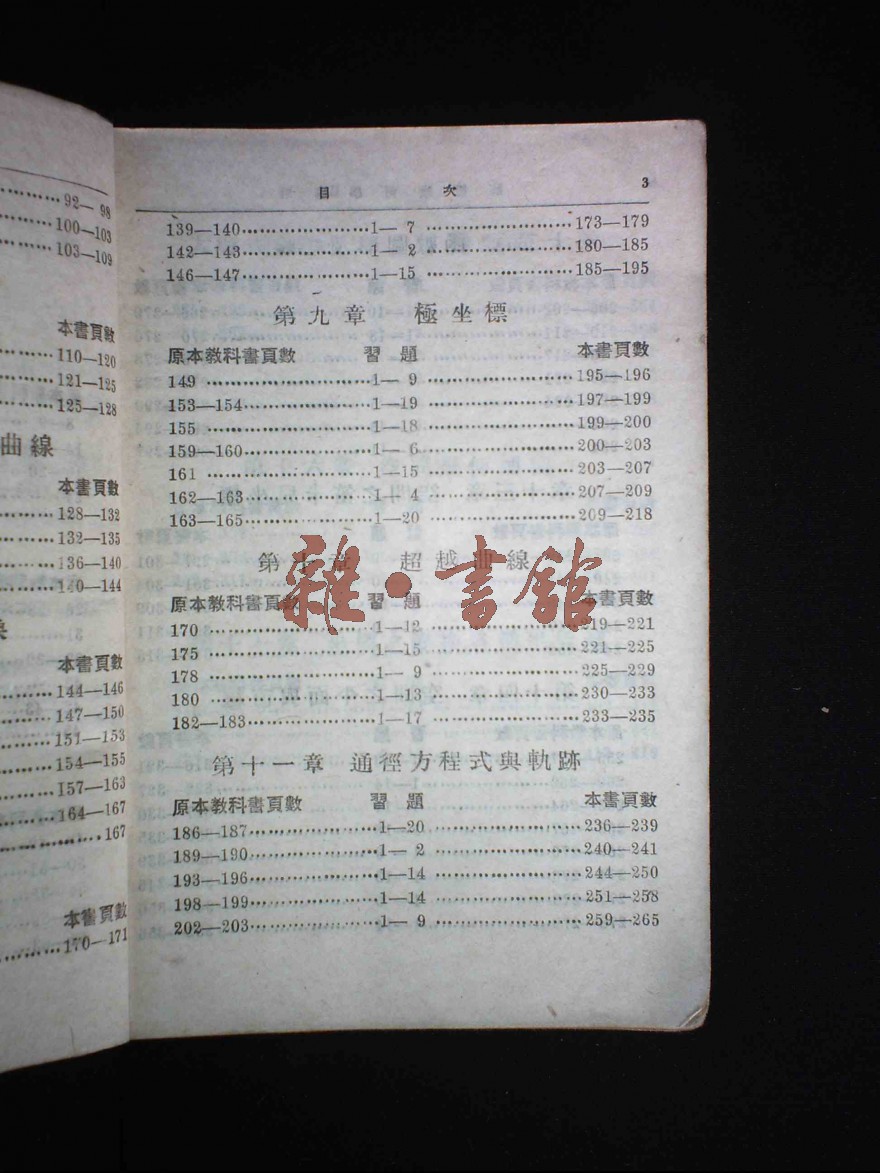 92—98
100—103
103—109
本書頁數
110—120
121—125
125—128
曲線
本書頁數
128—132
132—135
136—140
140—144
本書頁數
144—146
147—150
151—153
154—155
157—163
164—167
167
本書頁數
170—171
目 次 3
139—140 1—7 173—179
142—143 1—2 180—185
146—147 1—15 185—195
第九章 極坐標
原本教科書頁數 習題 本書頁數
149 1—9 195—196
153—154 1—19 197—199
155 1—18 199—200
159—160 1—6 200—203
161 1—15 203—207
162—163 1—4 207—209
163—165 1—20 209—218
第十章 超越曲線
原本教科書頁數 習題 本書頁數
170 1—12 219—221
175 1—15 221—225
178 1—9 225—229
180 1—13 230—233
182—183 1—17 233—235
第十一章 通徑方程式與軌跡
原本教科書頁數 習題 本書頁數
186—187 1—20 236—239
189—190 1—2 240—241
193—196 1—14 244—250
198—199 1—14 251—258
202—203 1—9 259—265
雜·書館